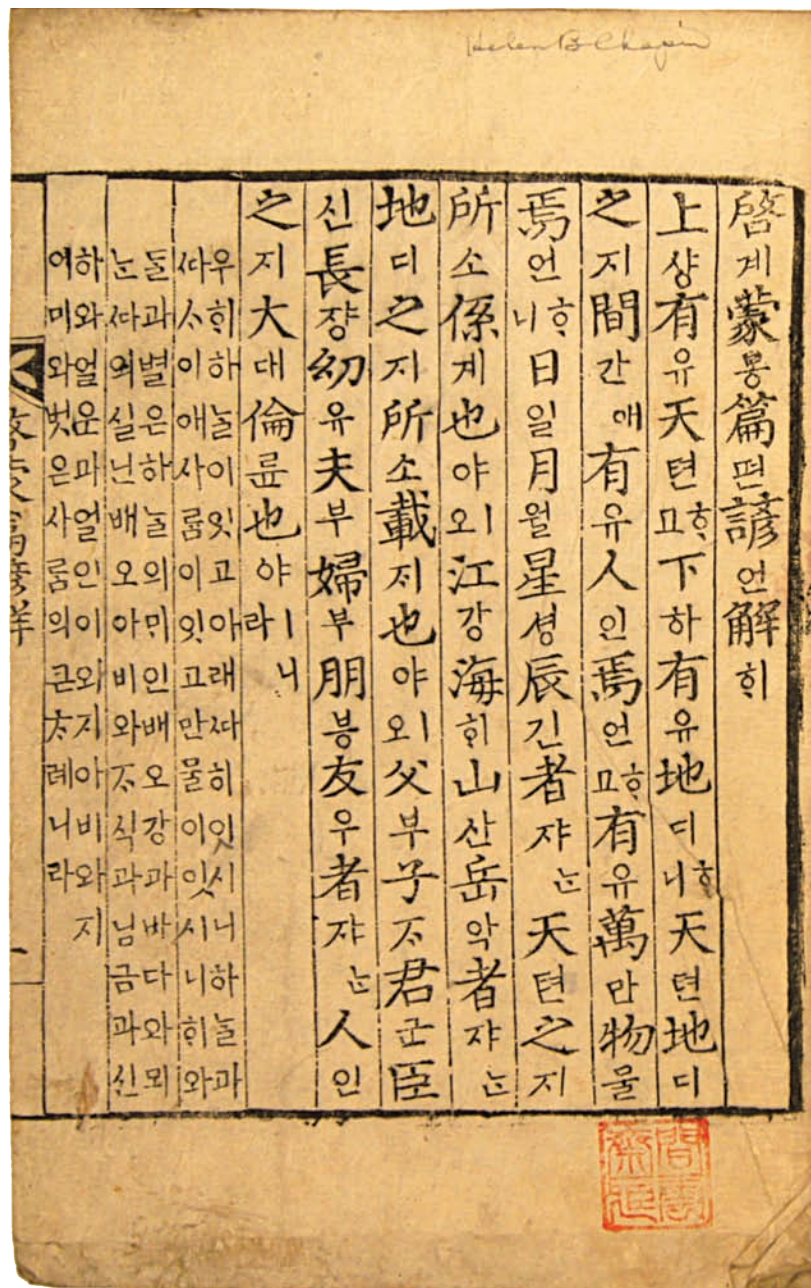 Helen B Chapin
啓계蒙몽篇편諺언解ᄒᆡ
上샹有유天텬ᄒᆞ고下하有유地디ᄒᆞ니天텬地디
之지間간애有유人인焉언ᄒᆞ고有유萬만物물
焉언ᄒᆞ니日일月월星셩辰긴者쟈ᄂᆞᆫ天텬之지
所소係계也야ㅣ오江강海ᄒᆡ山산岳악者쟈ᄂᆞᆫ
地디之지所소載ᄌᆡ也야ㅣ오父부子ᄌᆞ君군臣
신長쟝幼유夫부婦부朋붕友우者쟈ᄂᆞᆫ人인
之지大대倫륜也야ㅣ니라
우희하ᄂᆞᆯ이잇고아래ᄯᅡ히잇시니하ᄂᆞᆯ과
ᄯᅡᄉᆞ이애사ᄅᆞᆷ이잇고만물이잇시니ᄒᆡ와
ᄃᆞᆯ과별은하ᄂᆞᆯ의ᄆᆡ인배오강과바다와뫼
ᄂᆞᆫᄯᅡ의실닌배오아비와ᄌᆞ식과님금과신
하와얼운과얼인이와지아비와지
어미와벗은사ᄅᆞᆷ의큰ᄎᆞ례니라
啓蒙篇諺解 一